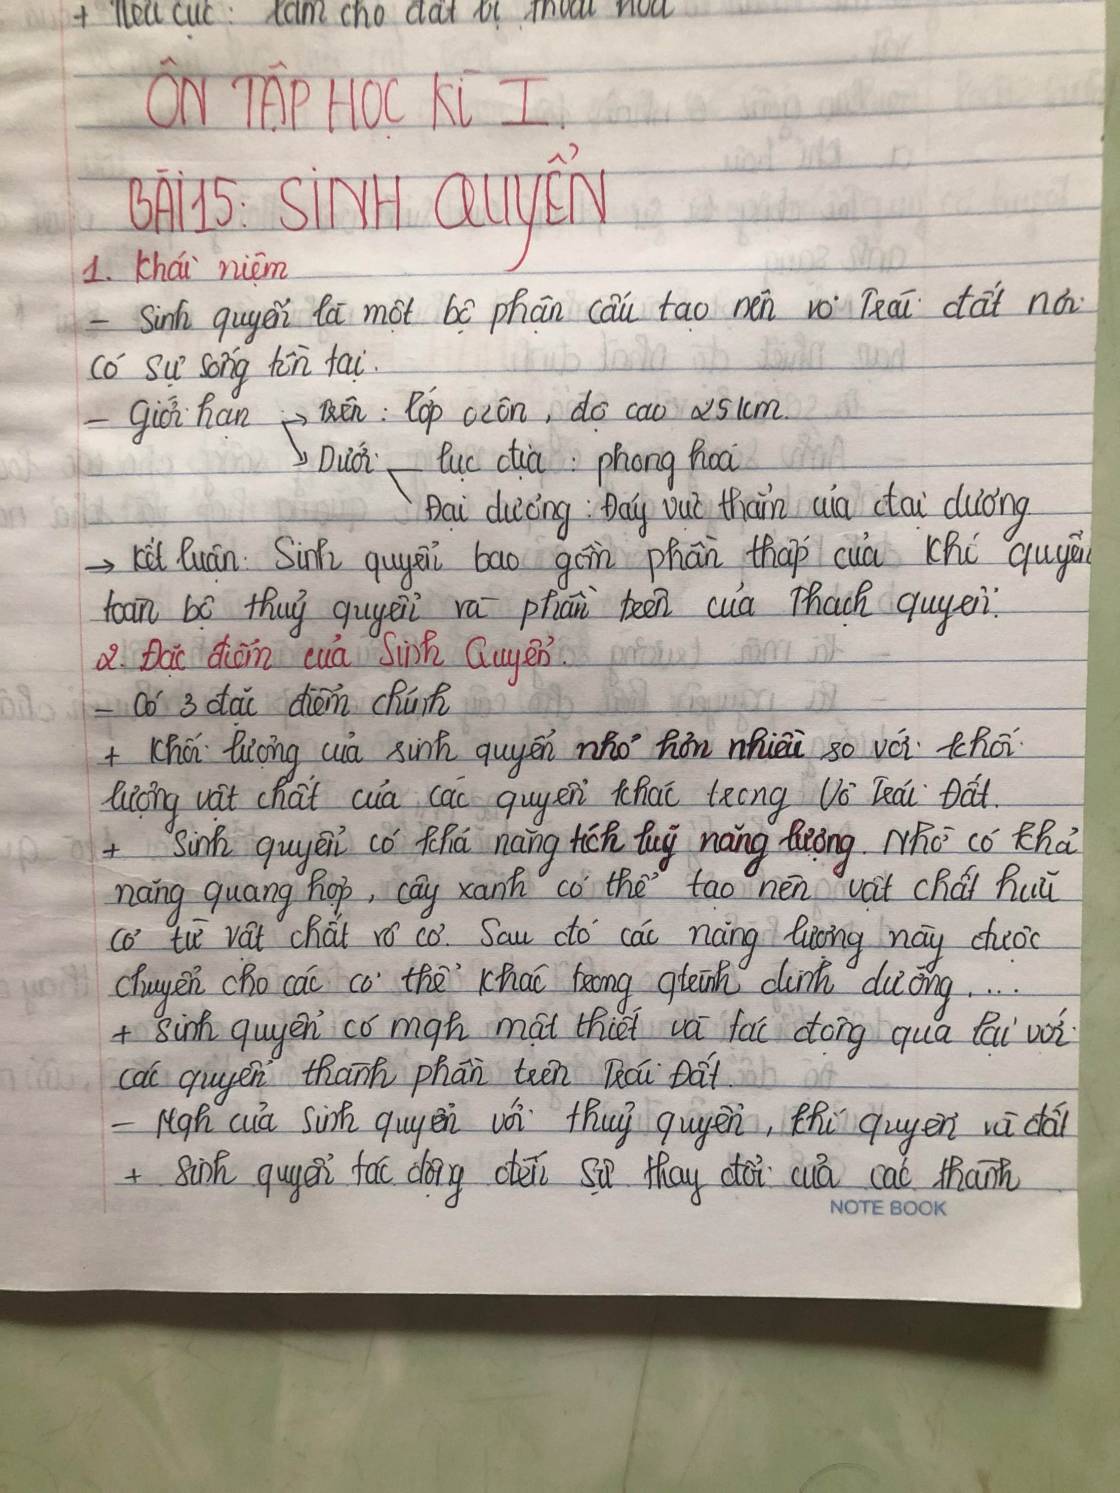 + Tiêu cực: làm cho đất bị thoái hoá
ÔN TẬP HỌC KÌ I.
BÀI 15: SINH QUYỂN
1. Khái niệm
- Sinh quyển là một bộ phận cấu tạo nên vỏ Trái đất nơi
có sự sống tồn tại.
- Giới hạn → Trên: lớp ozôn, độ cao 25km.
↘ Dưới - lục địa: phong hoá
Đại dương: Đáy vực thẳm của đại dương
→ Kết luận: Sinh quyển bao gồm phần thấp của khí quyển
toàn bộ thuỷ quyển và phần trên của Thạch quyển.
2. Đặc điểm của Sinh Quyển.
- Có 3 đặc điểm chính
+ Khối lượng của sinh quyển nhỏ hơn nhiều so với khối
lượng vật chất của các quyển khác trong Vỏ Trái Đất.
+ Sinh quyển có khả năng tích luỹ năng lượng. Nhờ có khả
năng quang hợp, cây xanh có thể tạo nên vật chất hữu
cơ từ vật chất vô cơ. Sau đó các năng lượng này được
chuyển cho các cơ thể khác trong qtrình dinh dưỡng....
+ Sinh quyển có mqh mật thiết và tác động qua lại với
các quyển thành phần trên Trái Đất.
- Mqh của sinh quyển với thuỷ quyển, khí quyển và đất
+ Sinh quyển tác động đến sự thay đổi của các thành
NOTE BOOK